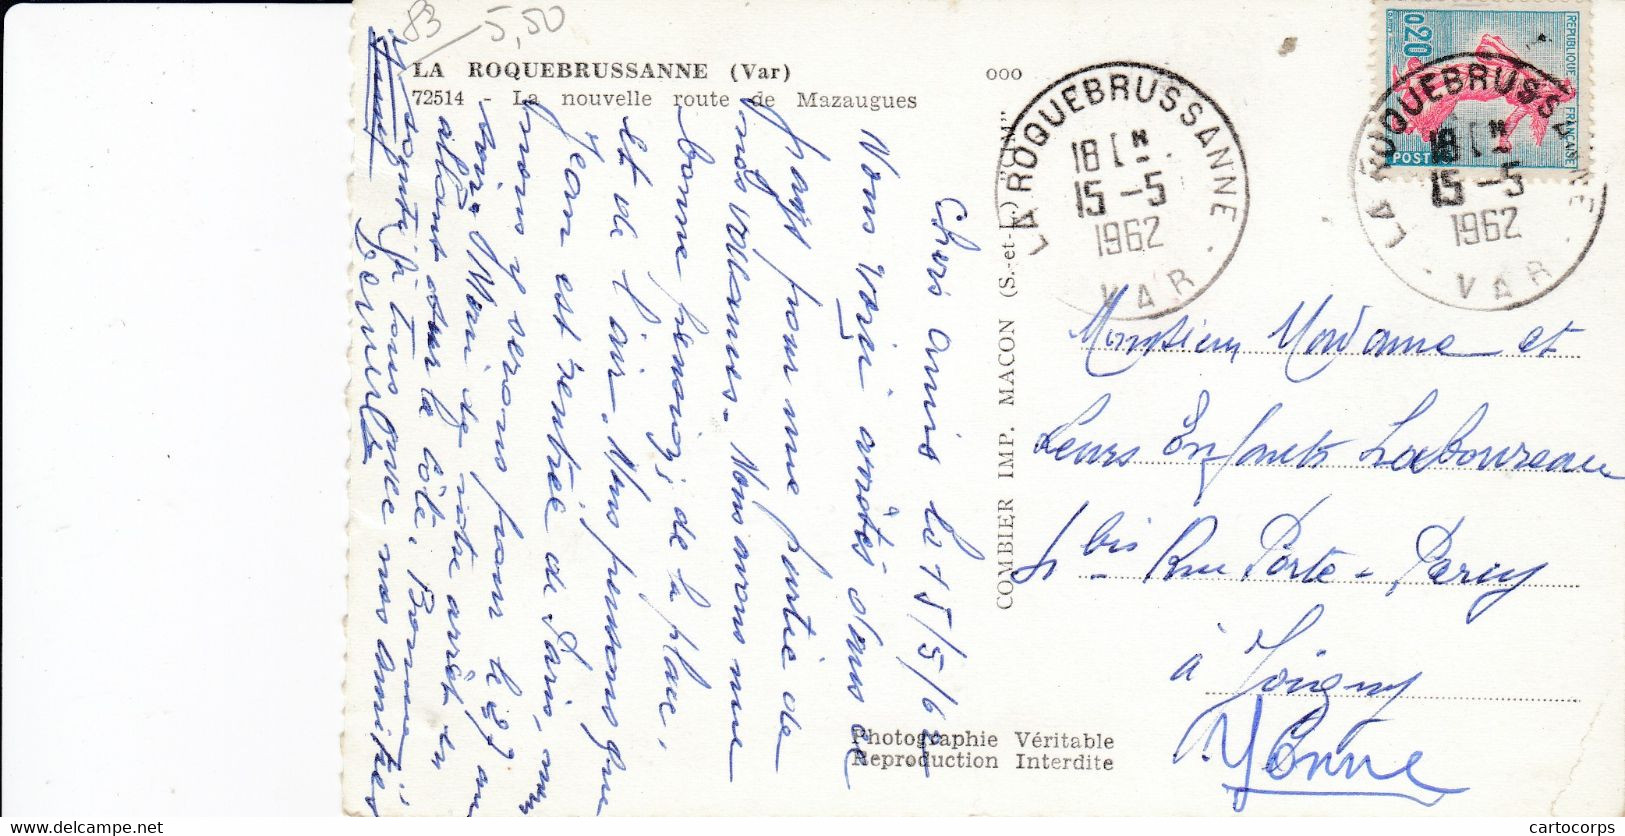 83 5,50
LA ROQUEBRUSSANNE (Var)
72514 - La nouvelle route de Mazaugues
ooo
0,20
REPUBLIQUE FRANÇAISE
POSTES
LA ROQUEBRUSSANNE
18 H
15 - 5
1962
VAR
LA ROQUEBRUSSANNE
18 H
15 - 5
1962
VAR
COMBIER IMP. MACON (S.-et-L.) "CIM"
Chers amis le 15/5/62
Nous voici arrêtés dans ce
pays pour une partie de
nos vacances. Nous avons une
bonne pension, de la place,
et de l'air. Nous pensons que
Jean est rentré de Paris, nous
nous y serons pour le 27 au
soir. Merci de votre arrêt en
allant sur la côte. Bonne
santé à tous avec nos amitiés
Monsieur Madame et
Leurs Enfants Laboureau
4 bis Rue Porte - Percy
à Joigny
Yonne
Photographie Véritable
Reproduction Interdite
cartocorps